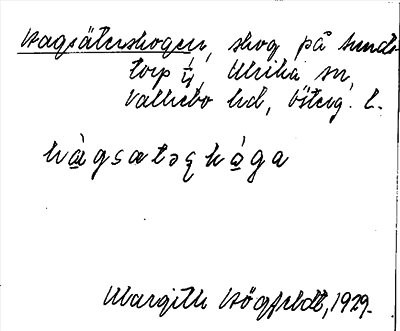 Hagsätershogen, skog på Sunds-
torp 1/4, Ulrika sn,
Valkebo hd, Österg. l.
hàgsatəꞩkåga
Margith Högfeldt, 1929.